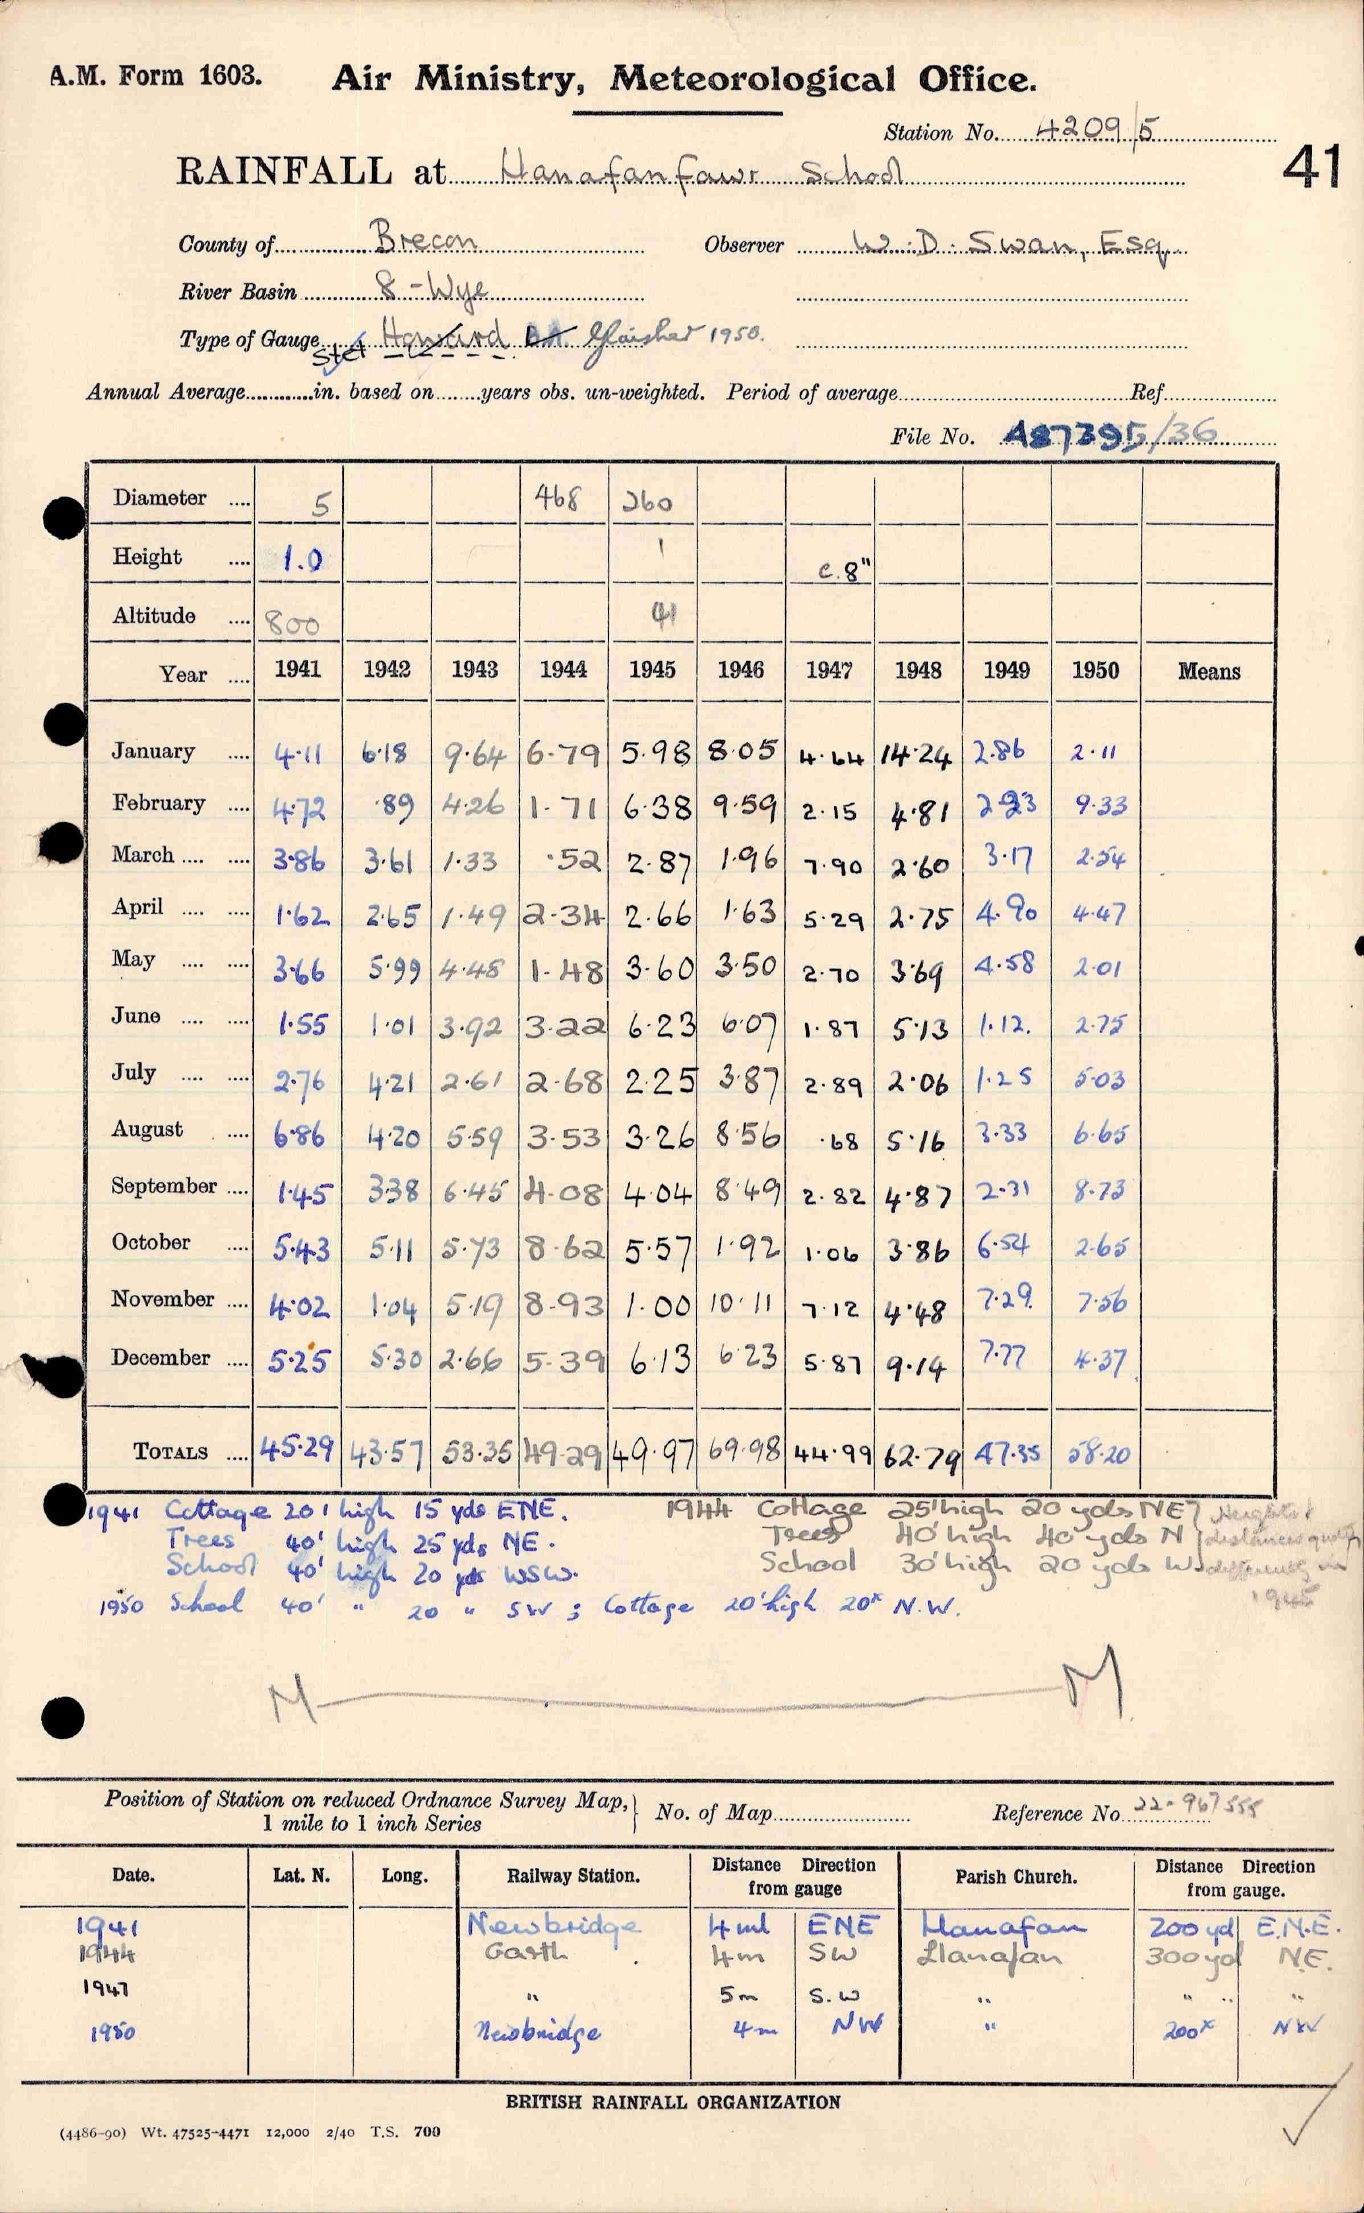 A.M. Form 1603. Air Ministry, Meteorological Office.
Station No. 4209/5
41
RAINFALL at Llanafanfawr School
County of Brecon Observer W. D. Swan, Esq
River Basin 8 - Wye
Type of Gauge stet Howard Glaisher 1950.
Annual Average in. based on years obs. un-weighted. Period of average Ref
File No. A87395/36
Diameter 5 468 260
Height 1.0 1 c. 8"
Altitude 800 41
Year 1941 1942 1943 1944 1945 1946 1947 1948 1949 1950 Means
January 4.11 6.18 9.64 6.79 5.98 8.05 4.64 14.24 2.86 2.11
February 4.72 .89 4.26 1.71 6.38 9.59 2.15 4.81 2.23 9.33
March 3.86 3.61 1.33 .52 2.87 1.96 7.90 2.60 3.17 2.54
April 1.62 2.65 1.49 2.34 2.66 1.63 5.29 2.75 4.90 4.47
May 3.66 5.99 4.48 1.48 3.60 3.50 2.70 3.69 4.58 2.01
June 1.55 1.01 3.92 3.22 6.23 6.07 1.87 5.13 1.12. 2.75
July 2.76 4.21 2.61 2.68 2.25 3.87 2.89 2.06 1.25 5.03
August 6.86 4.20 5.59 3.53 3.26 8.56 .68 5.16 3.33 6.65
September 1.45 3.38 6.45 4.08 4.04 8.49 2.82 4.87 2.31 8.73
October 5.43 5.11 5.73 8.62 5.57 1.92 1.06 3.86 6.54 2.65
November 4.02 1.04 5.19 8.93 1.00 10.11 7.12 4.48 7.29. 7.56
December 5.25 5.30 2.66 5.39 6.13 6.23 5.87 9.14 7.77 4.37
TOTALS 45.29 43.57 53.35 49.29 49.97 69.98 44.99 62.79 47.35 58.20
1941 Cottage 20' high 15 yds ENE. 1944 Cottage 25' high 20 yds NE Heights &
Trees 40' high 25 yds NE. Trees 40' high 40 yds N distances quoted
School 40' high 20 yds WSW. School 30' high 20 yds W. differently in
1950 School 40' " 20 " SW ; Cottage 20' high 20x N.W. 1945
M M
Position of Station on reduced Ordnance Survey Map, 1 mile to 1 inch Series No. of Map Reference No. 22-967555
Date. Lat. N. Long. Railway Station. Distance Direction from gauge Parish Church. Distance Direction from gauge.
1941 Newbridge 4 ml ENE Llanafan 200 yd E.N.E.
1944 Garth 4m SW Llanafan 300 yd NE.
1947 " 5m S.W " " .. "
1950 Newbridge 4m NW " 200x NW
BRITISH RAINFALL ORGANIZATION
(4486-90) Wt. 47525-4471 12,000 2/40 T.S. 700